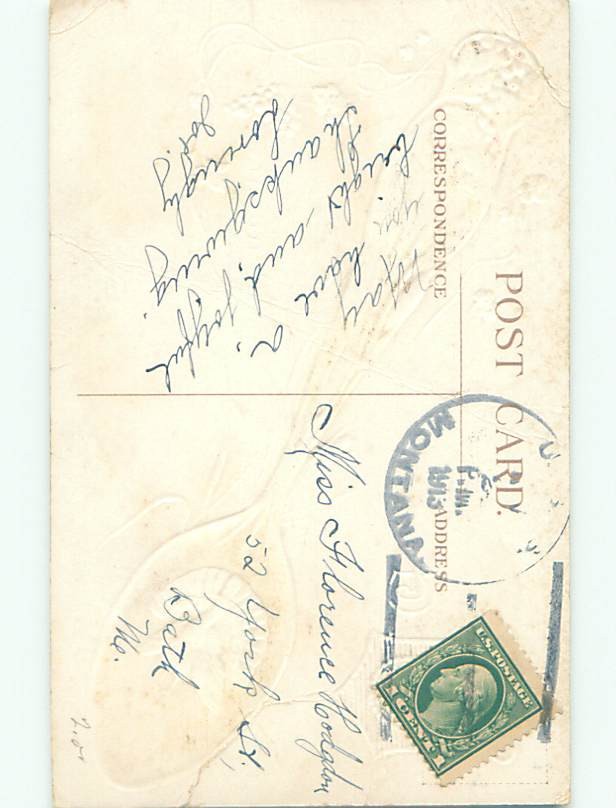 POST CARD.
CORRESPONDENCE
ADDRESS
May you have a
bright and joyful
Thanksgiving.
Lovingly
MONTANA
P.M.
1913
U.S. POSTAGE
1 CENT 1
Miss Florence Hodgdon
52 York St.
Bath
Me.